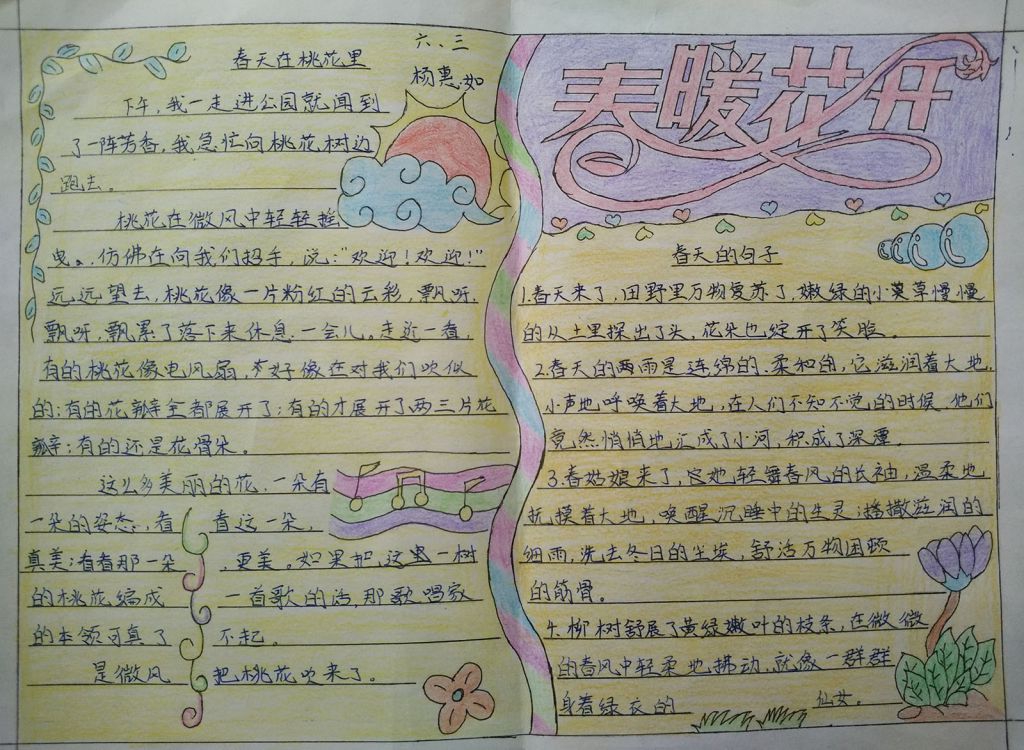 春天在桃花里
六、三
杨惠如
下午,我一走进公园就闻到
了一阵芳香,我急忙向桃花树边
跑去。
桃花在微风中轻轻摇
曳。仿佛在向我们招手,说:“欢迎!欢迎!”
远远望去,桃花像一片粉红的云彩,飘呀,
飘呀,飘累了落下来休息一会儿。走近一看,
有的桃花像电风扇,好像在对我们吹似
的;有的花瓣全都展开了;有的才展开了两三片花
瓣;有的还是花骨朵。
这么多美丽的花,一朵有
一朵的姿态,看看这一朵,
真美;看看那一朵,更美。如果把这一树
的桃花编成一首歌的话,那歌唱家
的本领可真了不起。
是微风把桃花吹来了。
春暖花开
春天的句子
1.春天来了,田野里万物复苏了,嫩绿的小草慢慢
的从土里探出了头,花朵也绽开了笑脸。
2.春天的雨是连绵的、柔和的,它滋润着大地,
小声地呼唤着大地,在人们不知不觉的时候,他们
竟然悄悄地汇成了小河,积成了深潭。
3.春姑娘来了,她轻舞春风的长袖,温柔地
抚摸着大地,唤醒沉睡中的生灵;播撒滋润的
细雨,洗去冬日的尘埃,舒活万物困顿
的筋骨。
4.柳树舒展了黄绿嫩叶的枝条,在微微
的春风中轻柔地拂动,就像一群群
身着绿衣的仙女。